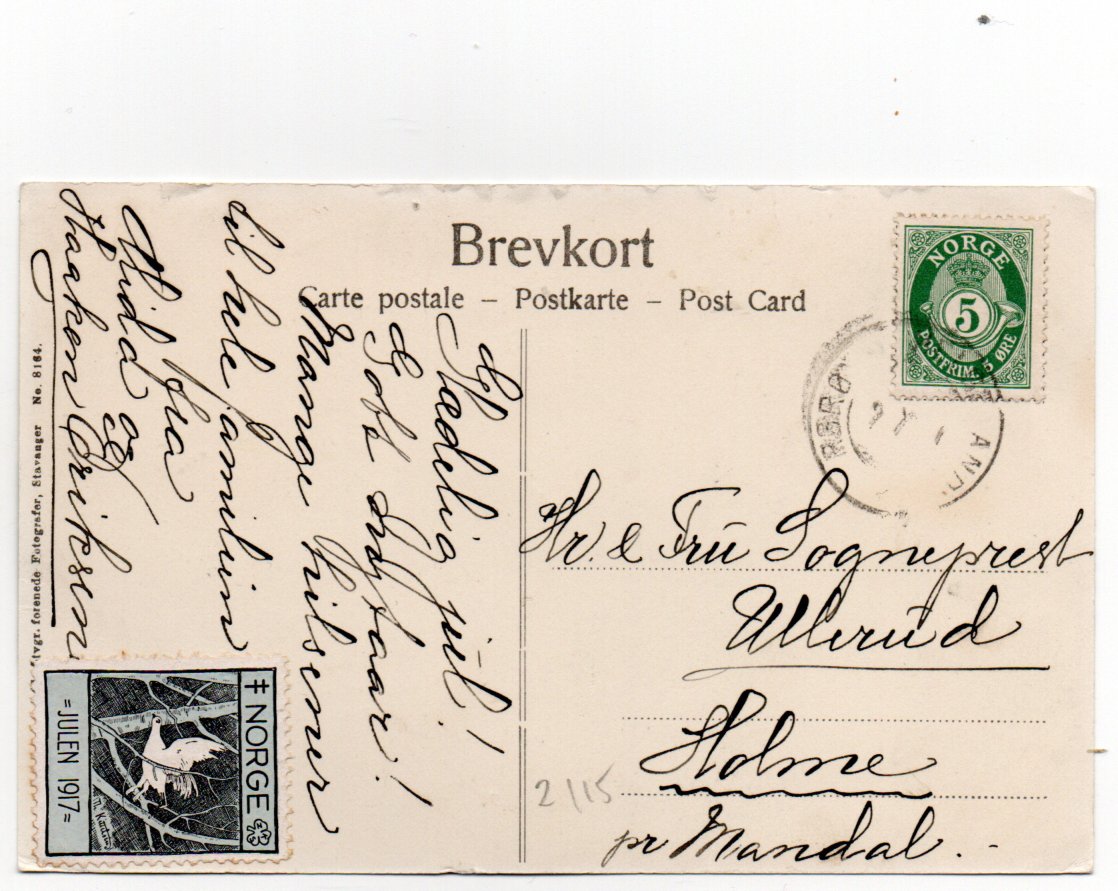 Brevkort
Carte postale – Postkarte – Post Card
NORGE
5
POSTFRIM. 5 ØRE
Glædelig jul!
Godt nyttaar!
Mange hilsener
til hele familien
fra
Hilda og
Haakon Eriksen
Hr. & Frú Sogneprest
Ullerúd
Holme
pr Mandal.
2/15
forenede Fotografer, Stavanger No. 8164.
NORGE
= JULEN 1917 =